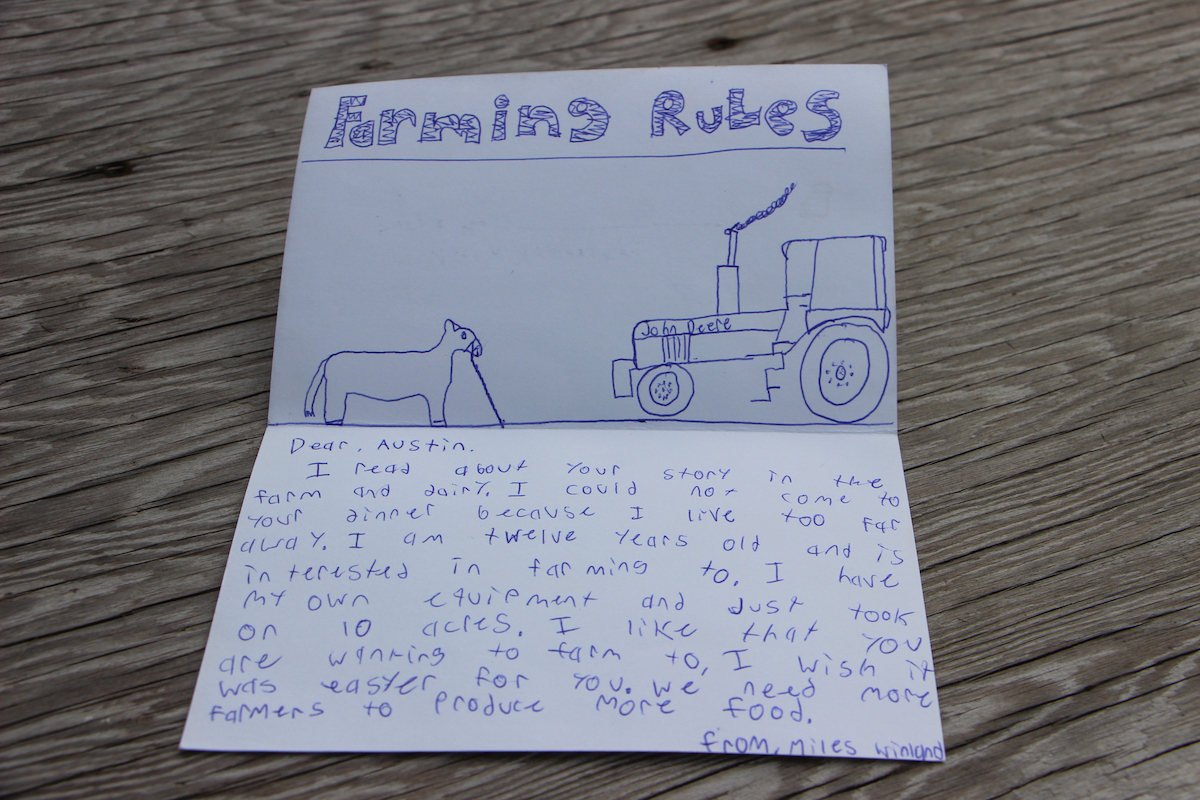 Farming Rules
John Deere
Dear, Austin.
I read about your story in the
farm and dairy. I could not come to
your dinner because I live too far
away. I am twelve years old and is
interested in farming to. I have
my own equipment and just took
on 10 acres. I like that you
are wanting to farm to, I wish it
was easier for you. We need more
farmers to produce more food.
from, Miles Winland